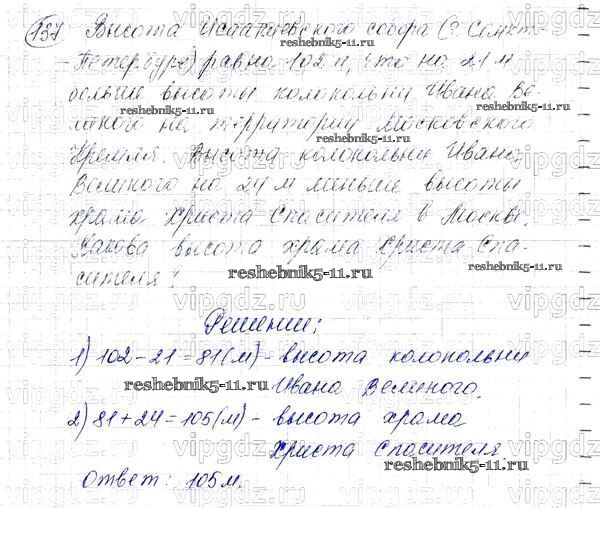 137 Высота Исаакиевского собора (г. Санкт-
-Петербург) равна 102 м, что на 21 м
больше высоты колокольни Ивана Ве-
ликого на территории Московского
Кремля. Высота колокольни Ивана
Великого на 24 м меньше высоты
храма Христа Спасителя в Москве.
Какова высота храма Христа Спа-
сителя?
Решение:
1) 102 - 21 = 81 (м) - высота колокольни
Ивана Великого.
2) 81 + 24 = 105 (м) - высота храма
Христа Спасителя.
Ответ: 105 м.
reshebnik5-11.ru
reshebnik5-11.ru
reshebnik5-11.ru
reshebnik5-11.ru
reshebnik5-11.ru
vipgdz.ru